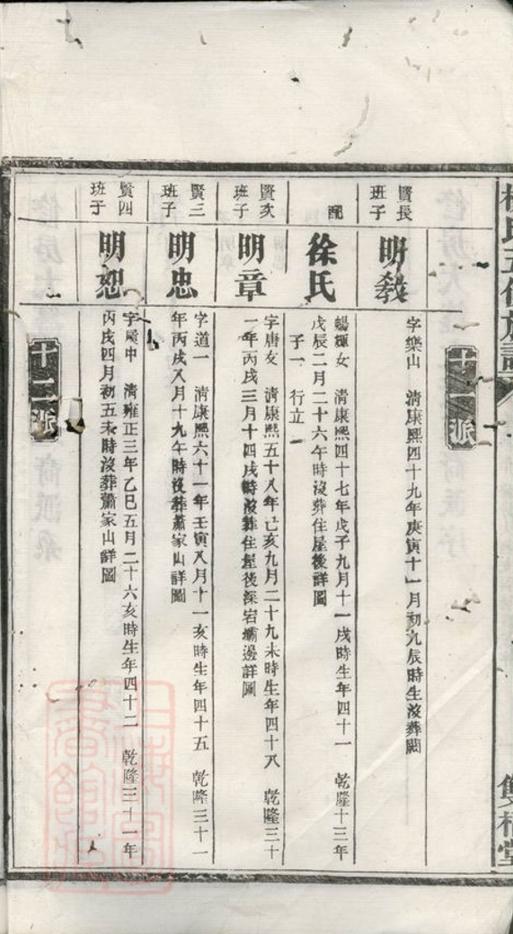 十二派
賢長
班子
明教
字樂山 清康熙四十九年庚寅十一月初九辰時生沒葬闕
配
徐氏
暢輝女 清康熙四十七年戊子九月十一戌時生年四十一 乾隆十三年
戊辰二月二十六午時沒葬住屋後詳圖
子一 行立一
賢次
班子
明章
字唐友 清康熙五十八年己亥九月二十九未時生年四十八 乾隆三十
一年丙戌三月十四戌時沒葬住屋後深宕壩邊詳圖
賢三
班子
明忠
字道一 清康熙六十一年壬寅八月十一亥時生年四十五 乾隆三十一
年丙戌八月十九午時沒葬蕭家山詳圖
賢四
班子
明恕
字 中 清雍正三年乙巳五月二十六亥時生年四十二 乾隆三十一年
丙戌四月初五未時沒葬蕭家山詳圖
十二派